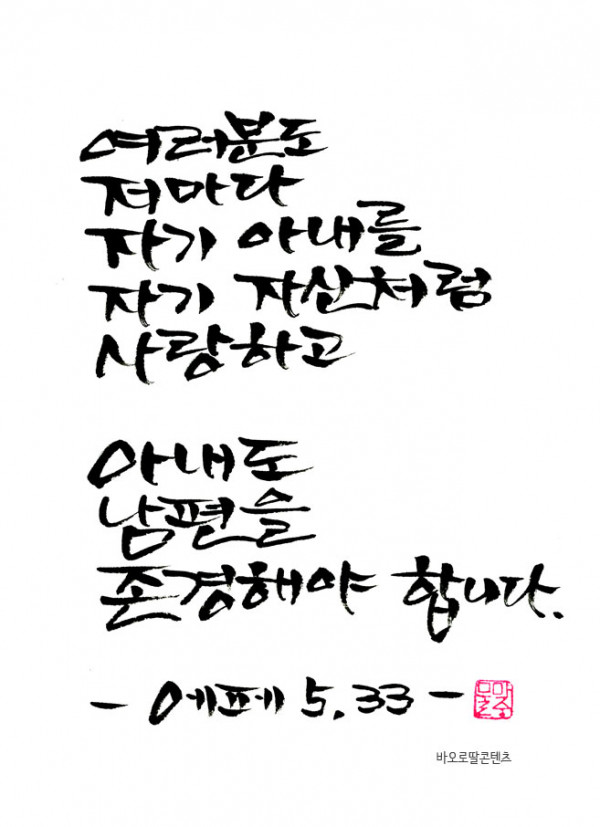 여러분도
저마다
자기 아내를
자기 자신처럼
사랑하고
아내도
남편을
존경해야 합니다.
- 에페 5,33 -
바오로딸콘텐츠